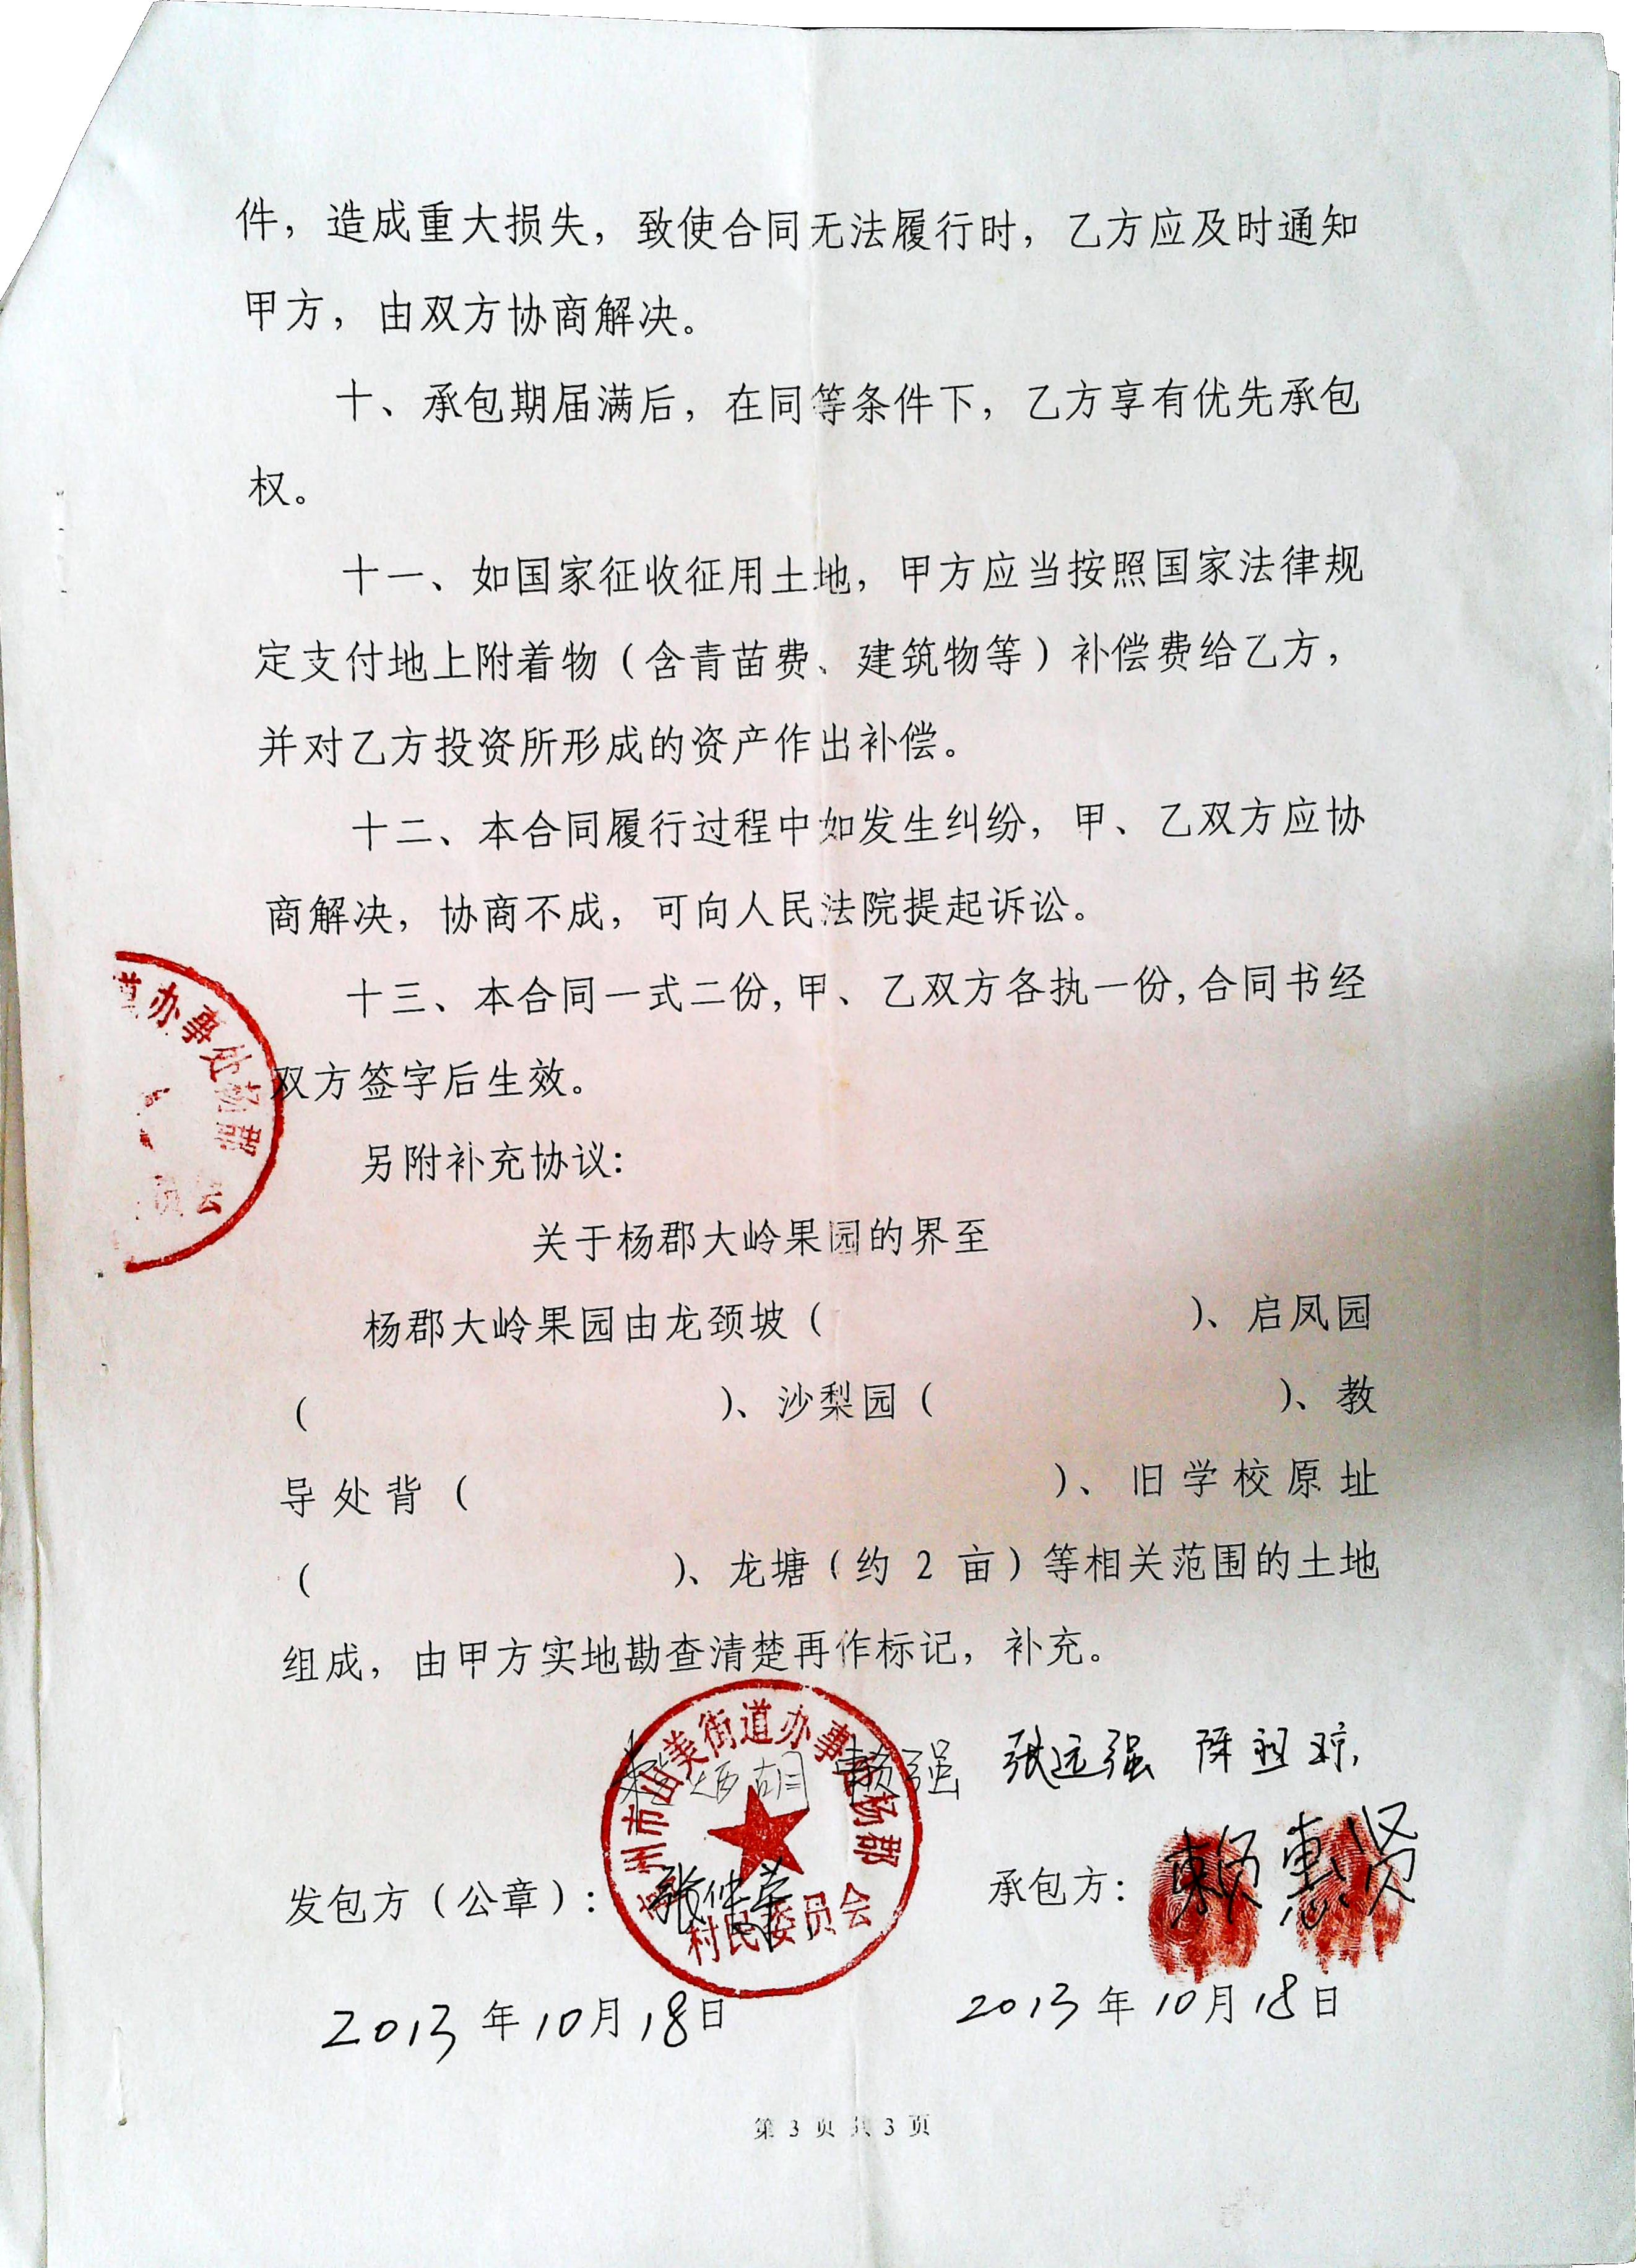 件，造成重大损失，致使合同无法履行时，乙方应及时通知
甲方，由双方协商解决。
十、承包期届满后，在同等条件下，乙方享有优先承包
权。
十一、如国家征收征用土地，甲方应当按照国家法律规
定支付地上附着物（含青苗费、建筑物等）补偿费给乙方，
并对乙方投资所形成的资产作出补偿。
十二、本合同履行过程中如发生纠纷，甲、乙双方应协
商解决，协商不成，可向人民法院提起诉讼。
十三、本合同一式二份，甲、乙双方各执一份，合同书经
道办事处杨郡
员会
双方签字后生效。
另附补充协议：
关于杨郡大岭果园的界至
杨郡大岭果园由龙颈坡（ ）、启凤园
（ ）、沙梨园（ ）、教
导处背（ ）、旧学校原址
（ ）、龙塘（约 2 亩）等相关范围的土地
组成，由甲方实地勘查清楚再作标记，补充。
州市山美街道办事处杨郡
村民委员会
赖强 张远强 陈祖琼
发包方（公章）： 张 承包方：赖惠贤
2013年10月18日 2013年10月18日
第 3 页 共 3 页